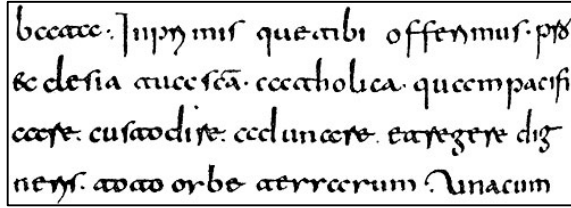 bata· Inprimis que tibi offerimus· pro
ecclesia tua scā· catholica· quam pacifi
care· custodire· adunare· et regere dig
neris· toto orbe terrarum· Unacum